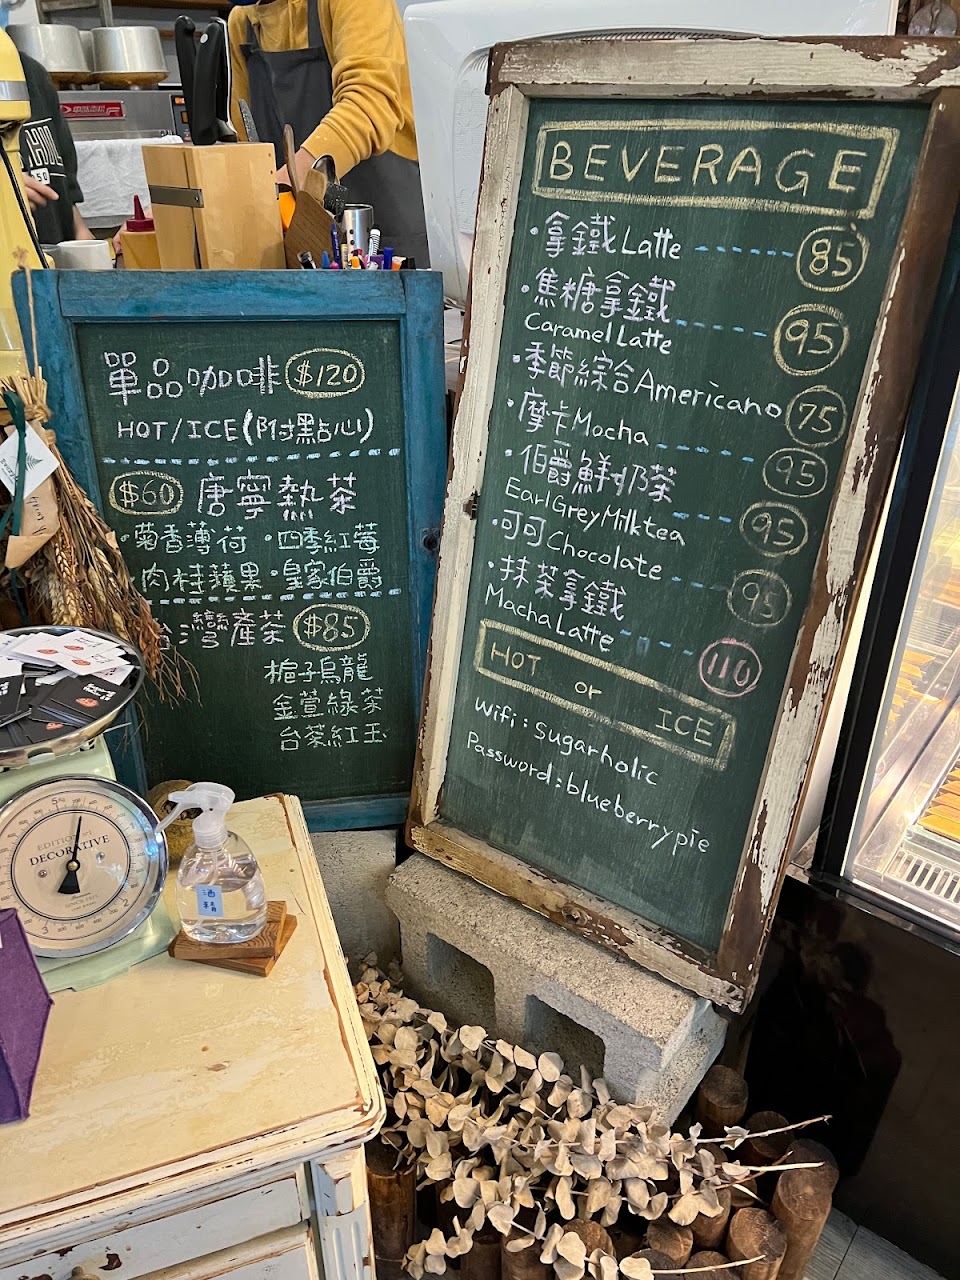 單品咖啡 $120
HOT/ICE(附點心)
$60 唐寧熱茶
·菊香薄荷 ·四季紅莓
·肉桂蘋果 ·皇家伯爵
台灣產茶 $85
梔子烏龍
金萱綠茶
台茶紅玉
BEVERAGE
·拿鐵Latte 85
·焦糖拿鐵
Caramel Latte 95
·季節綜合Americano 75
·摩卡Mocha 95
·伯爵鮮奶茶
Earl Grey Milk tea 95
·可可Chocolate 95
·抹茶拿鐵
Macha Latte 110
HOT or ICE
Wifi: sugarholic
Password: blueberrypie
EDITION no1
DECORATIVE
酒
精